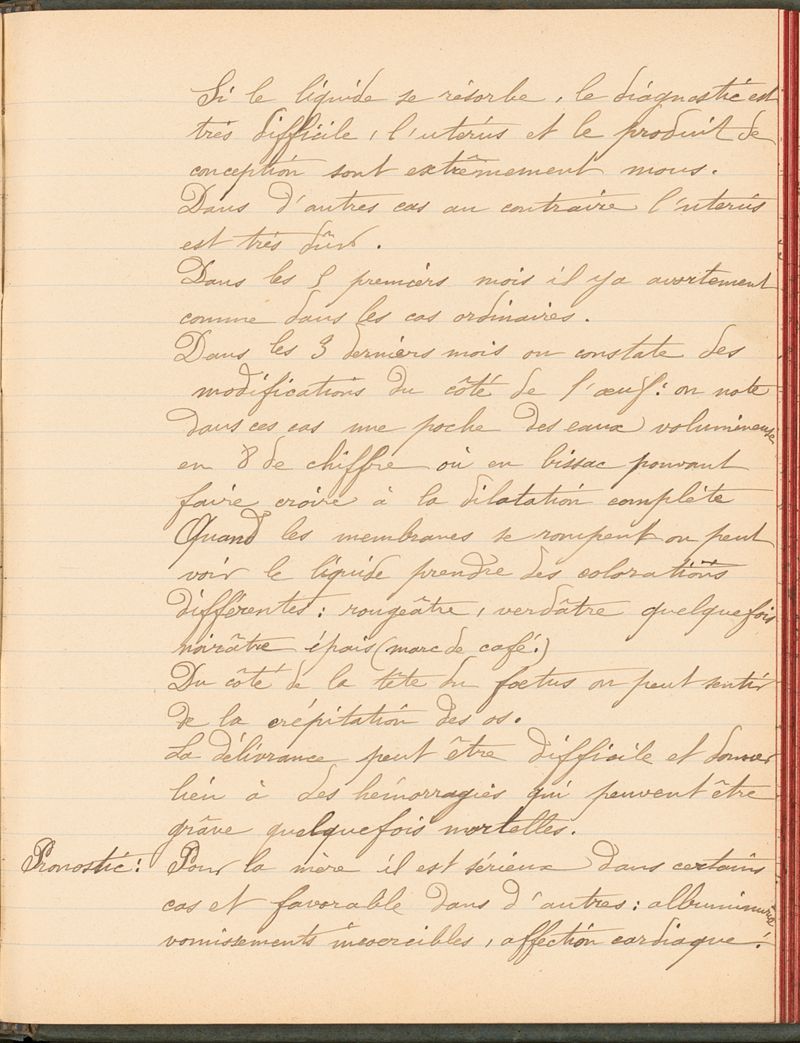 Si le liquide se résorbe, le diagnostic est
très difficile, l'utérus et le produit de
conception sont extrêmement mous.
Dans d'autres cas au contraire l'utérus
est très dûr.
Dans les 5 premiers mois il y a avortement
comme dans les cas ordinaires.
Dans les 3 derniers mois on constate des
modifications du côté de l'œuf: on note
dans ces cas une poche des eaux volumineuse
en 8 de chiffre où en bissac pouvant
faire croire à la dilatation complète
Quand les membranes se rompent on peut
voir le liquide prendre des colorations
différentes: rougeâtre, verdâtre quelquefois
noirâtre épais (marc de café.)
Du côté de la tête du foetus on peut sentir
de la crépitation des os.
La délivrance peut être difficile et donner
lieu à des hémorragies qui peuvent être
grâve quelquefois mortelles.
Pronostic: Pour la mère il est sérieux dans certains
cas et favorable dans d'autres: albuminurie
vomissements incoercibles, affection cardiaque.